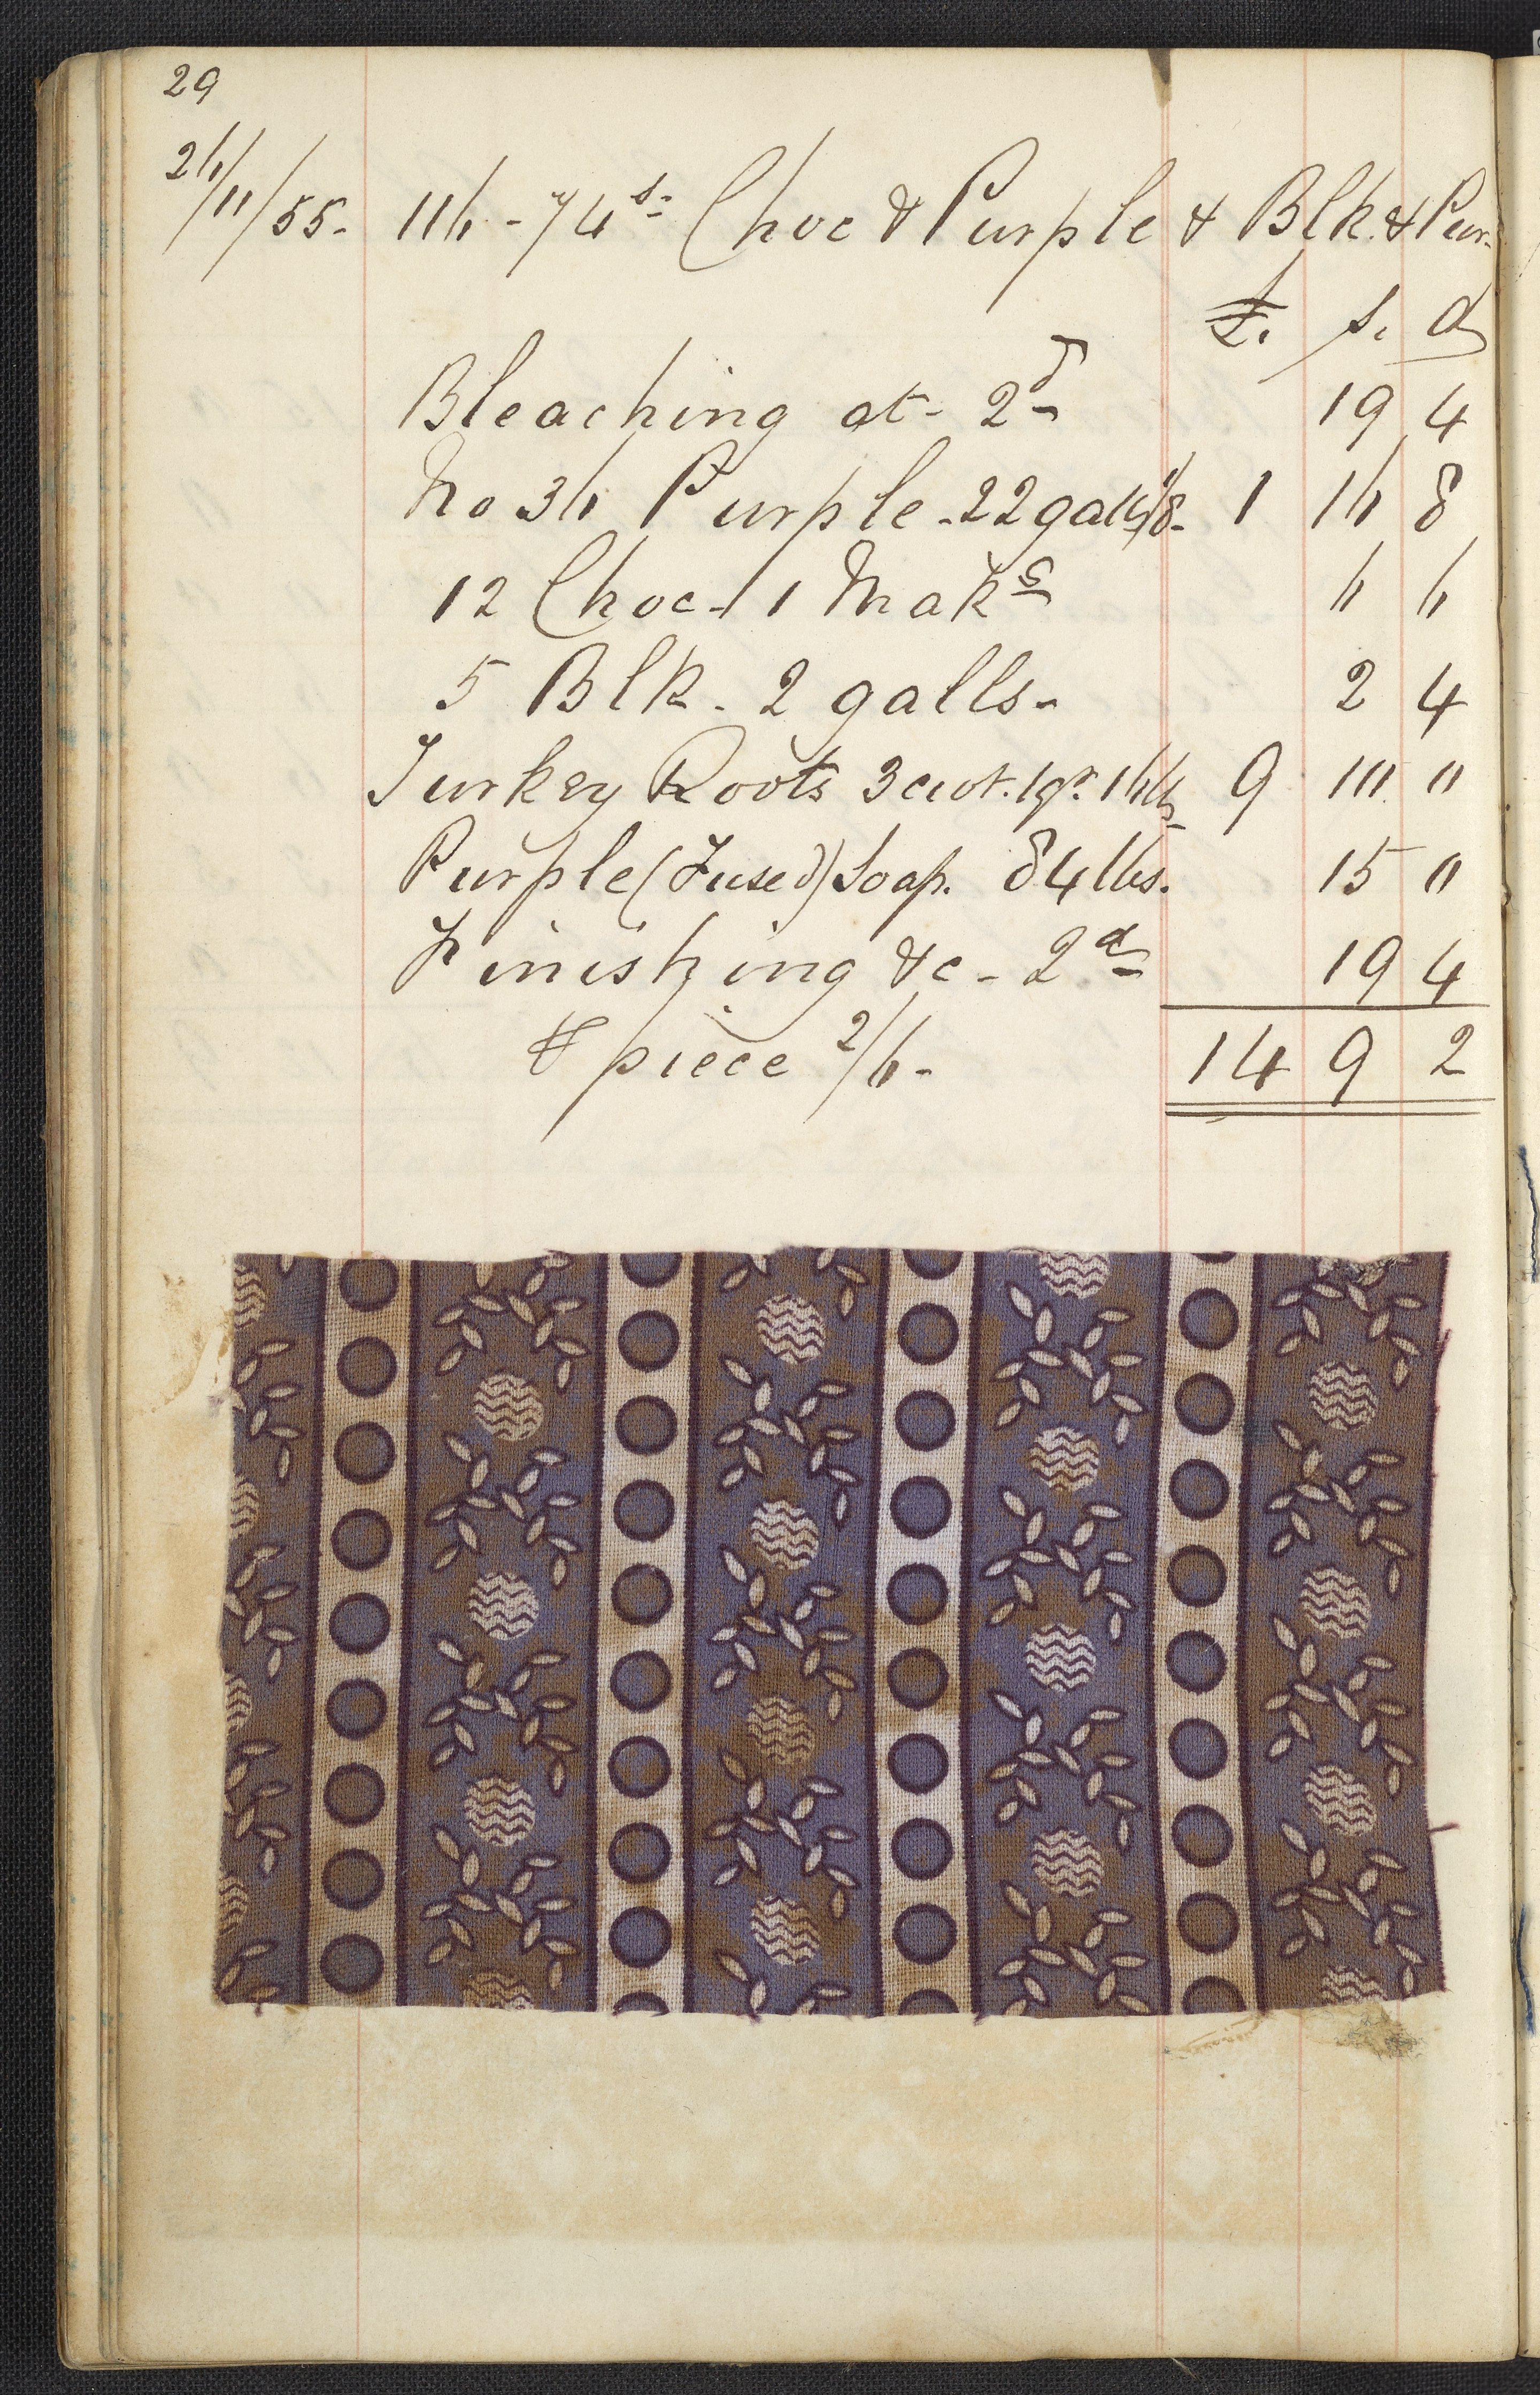 29
26/11/55- 116 - 74s- Choc & Purple & Blk. & Pur-
£. s. d
Bleaching at- 2d- 19 4
No 36 Purple - 22 galls 1/8- 1 16 8
12 Choc - 1 Mak g 6 6
5 Blk - 2 galls- 2 4
Turkey Roots 3 cwt. 1 qr. 16 lbs 9 10 "
Purple (Fused) Soap. 84 lbs. 15 "
Finishing &c - 2d- 19 4
⅌ piece 2/6- 14 9 2